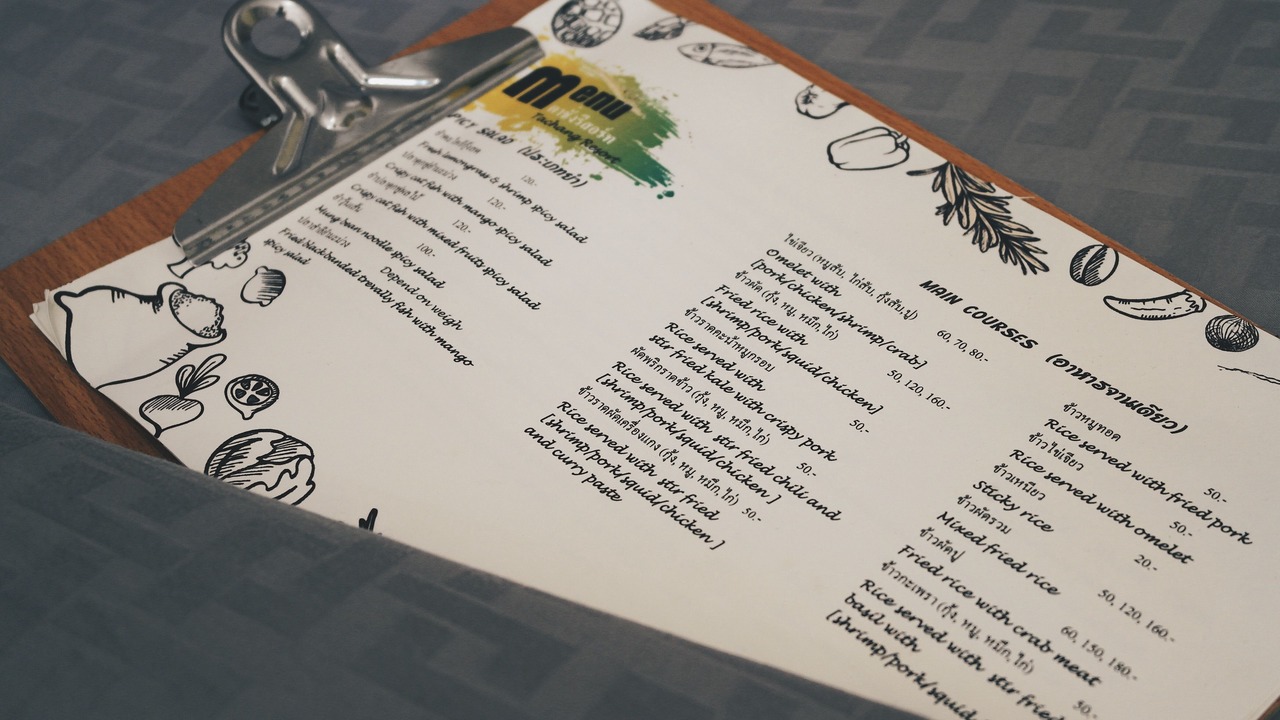 Menu
Tachang Resort
SPICY SALAD (ประเภทยำ)
120.-
Fresh lemongrass & shrimp spicy salad
120.-
Crispy cat fish with mango spicy salad
120.-
Crispy cat fish with mixed fruits spicy salad
ยำวุ้นเส้น 100.-
Mung bean noodle spicy salad
Depend on weigh
Fried black banded trevally fish with mango
spicy salad
MAIN COURSES (อาหารจานเดียว)
ไข่เจียว (หมูสับ, ไก่สับ, กุ้งสับ, ปู) 60, 70, 80.-
Omelet with
[pork/chicken/shrimp/crab]
ข้าวผัด (กุ้ง, หมู, หมึก, ไก่) 50, 120, 160.-
Fried rice with
[shrimp/pork/squid/chicken]
ข้าวราดคะน้าหมูกรอบ 50.-
Rice served with
stir fried kale with crispy pork
ผัดพริกราดข้าว (กุ้ง, หมู, หมึก, ไก่) 50.-
Rice served with stir fried chili and
[shrimp/pork/squid/chicken ]
ข้าวราดผัดเครื่องแกง (กุ้ง, หมู, หมึก, ไก่) 50.-
Rice served with stir fried
[shrimp/pork/squid/chicken ]
and curry paste
ข้าวหมูทอด 50.-
Rice served with fried pork
ข้าวไข่เจียว 50.-
Rice served with omelet
ข้าวเหนียว 20.-
Sticky rice
ข้าวผัดรวม 50, 120, 160.-
Mixed fried rice
ข้าวผัดปู 60, 150, 180.-
Fried rice with crab meat
ข้าวกะเพรา (กุ้ง, หมู, หมึก, ไก่) 50.-
Rice served with stir fried
basil with
[shrimp/pork/squid